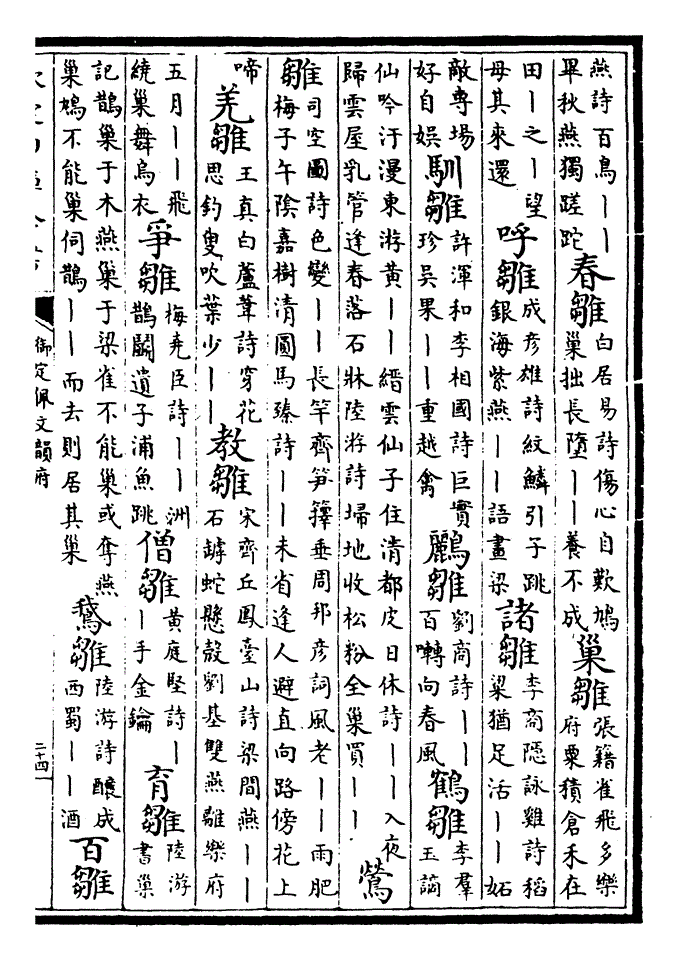 燕詩百鳥——畢秋燕獨蹉跎春雛白居易詩傷心自歎鳩巢拙長墮——養不成巢雛張籍雀飛多樂府粟積倉禾在
田—之—望母其來還呼雛成彦雄詩紋鱗引子跳銀海紫燕——語畫梁諸雛李商隱詠雞詩稻梁猶足活——妬
敵專場好自娯馴雛許渾和李相國詩巨實珍吳果——重越禽鸝雛劉商詩——百囀向春風鶴雛李羣玉謫
仙吟汗漫東游黄——縉雲仙子住清都皮日休詩——入夜歸雲屋乳管逢春落石牀陸游詩埽地收松粉全巢買——鶯
雛司空圖詩色變——長竿齊笋籜垂周邦彦詞風老——雨肥梅子午陰嘉樹清圓馬臻詩——未省逢人避直向路傍花上
啼羌雛王真白蘆葦詩穿花思釣叟吹葉少——教雛宋齊丘鳳臺山詩梁間燕——石罅蛇懸殼劉基雙燕離樂府
五月——飛繞巢舞烏衣爭雛梅堯臣詩——洲鵲鬬遺子浦魚跳僧雛黄庭堅詩——手金鑰育雛陸游書巢
記鵲巢于木燕巢于梁雀不能巢或奪燕巢鳩不能巢伺鵲——而去則居其巢鵞雛陸游詩釀成西蜀——酒百雛
御定佩文韻府
二十四